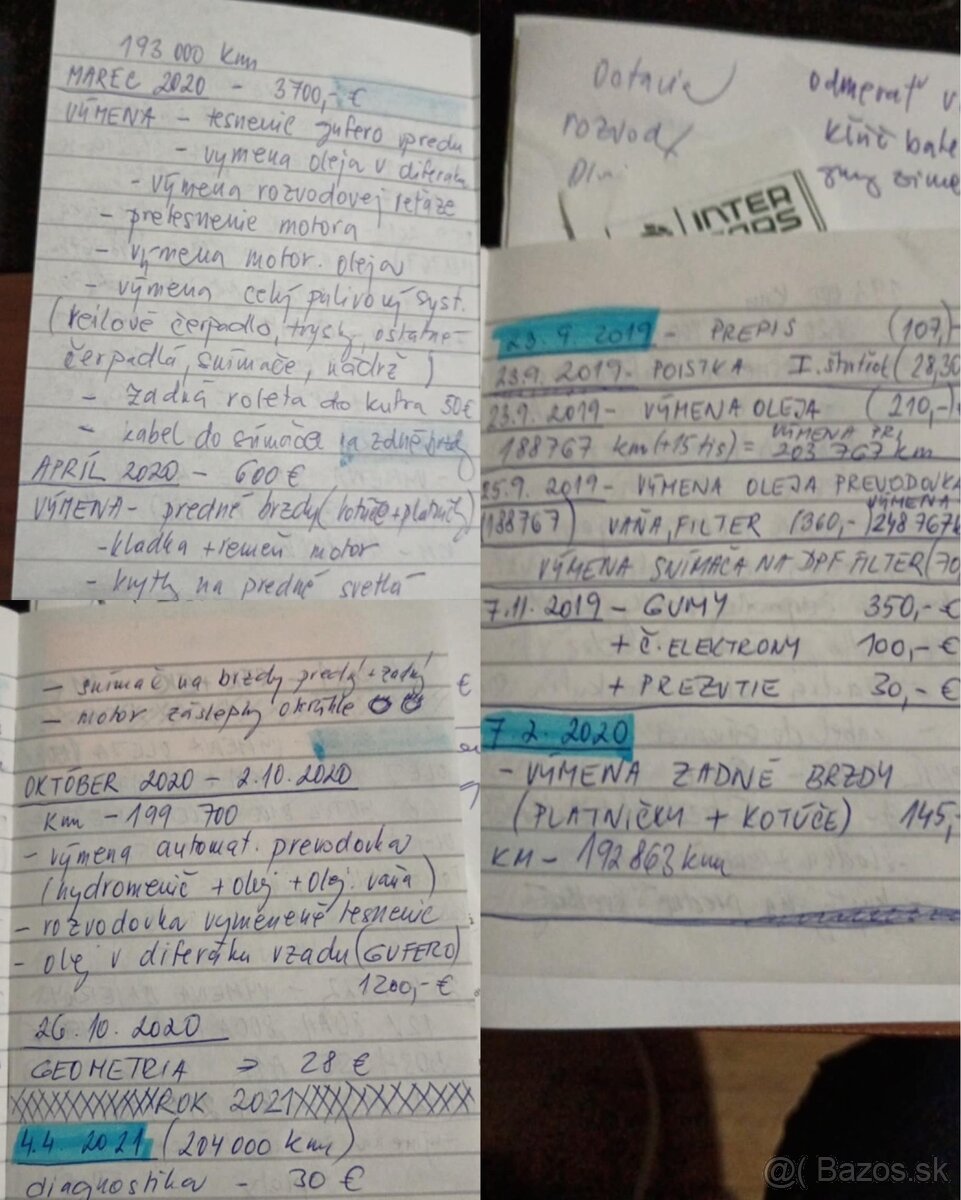 193 000 Km
MAREC 2020 - 3700,- €
VÝMENA - tesnenie gufero vpredu
- vymena oleja v diferaku
- výmena rozvodovej reťaze
- pretesnenie motora
- výmena motor. oleja
- výmena celý palivový syst.
(reilové čerpadlo, trysky, ostatné
čerpadlá, snímače, nádrž)
- zadná roleta do kufra 50€
- kabel do snímača na zadné brzdy
APRÍL 2020 - 600 €
VÝMENA - predné brzdy (kotúče + platničky)
- kladka + remeň motor
- krytky na predné svetlá
- snímač na brzdy predný + zadný €
- motor záslepky okrúhle
OKTÓBER 2020 - 2.10.2020
Km - 199 700
- výmena automat. prevodovka
(hydromenič + olej + olej. vaňa)
- rozvodovka vymenené tesnenie
- olej v diferáku vzadu (GUFERO)
1200,- €
26.10.2020
GEOMETRIA => 28 €
ROK 2021
4.4.2021 (204 000 Km)
diagnostika - 30 €
odmerať v
rozvody
kľúč
INTER
23.9.2019 - PREPIS (107,-
23.9.2019 - POISTKA I. štvrťrok (28,30
23.9.2019 - VÝMENA OLEJA (210,-)
188767 km (+15 tis) = VÝMENA PRI 203 767 km
25.9.2019 - VÝMENA OLEJA PREVODOVKA
(188767) VAŇA, FILTER (360,-) VÝMENA 248 767k
VÝMENA SNÍMAČA NA DPF FILTER (70
7.11.2019 - GUMY 350,- €
+ č. ELEKTRONY 100,- €
+ PREZUTIE 30,- €
7.2.2020
- VÝMENA ZADNÉ BRZDY
(PLATNIČKY + KOTÚČE) 145,-
KM - 192 863 km
@( Bazos.sk